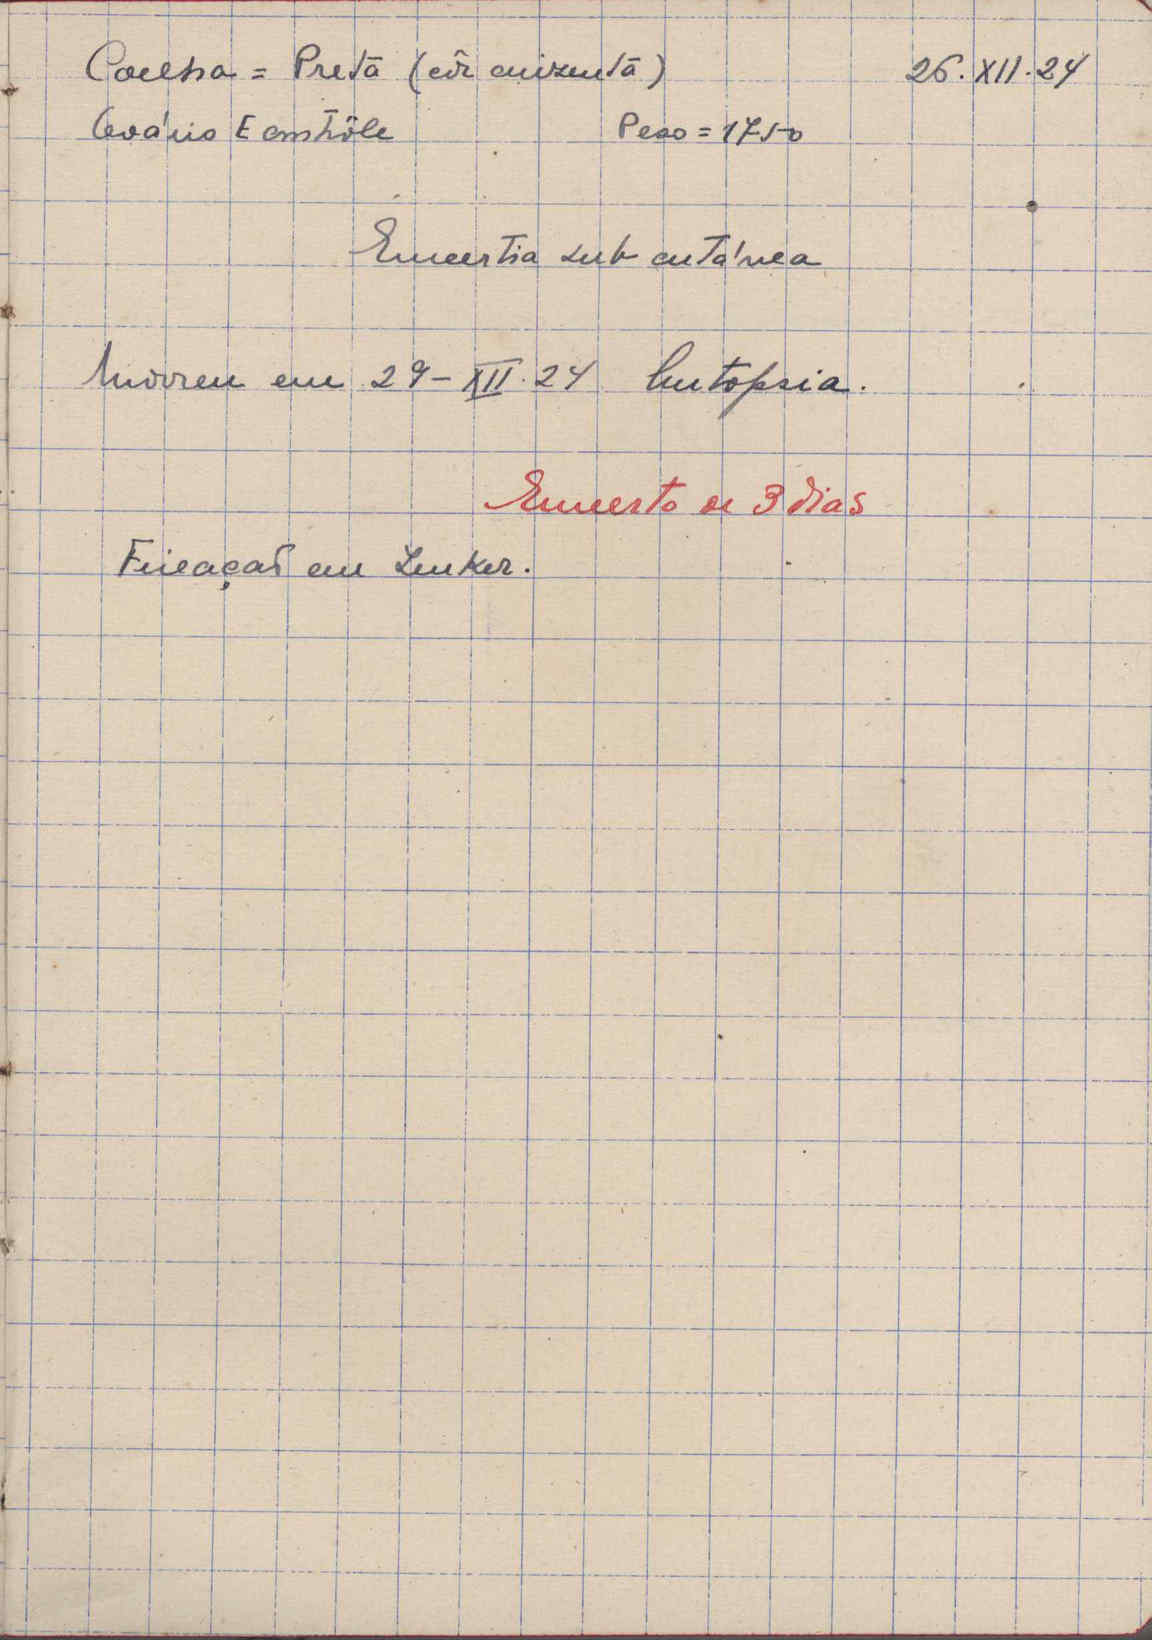 Coelha = Preta (côr cinzenta) 26.XII.24
Ovário E contrôle Peso = 1750
Enxertia sub cutánea
Morreu em 29-XII.24 Autopsia.
Enxerto de 3 dias
Fixaçaõ em Zenker.